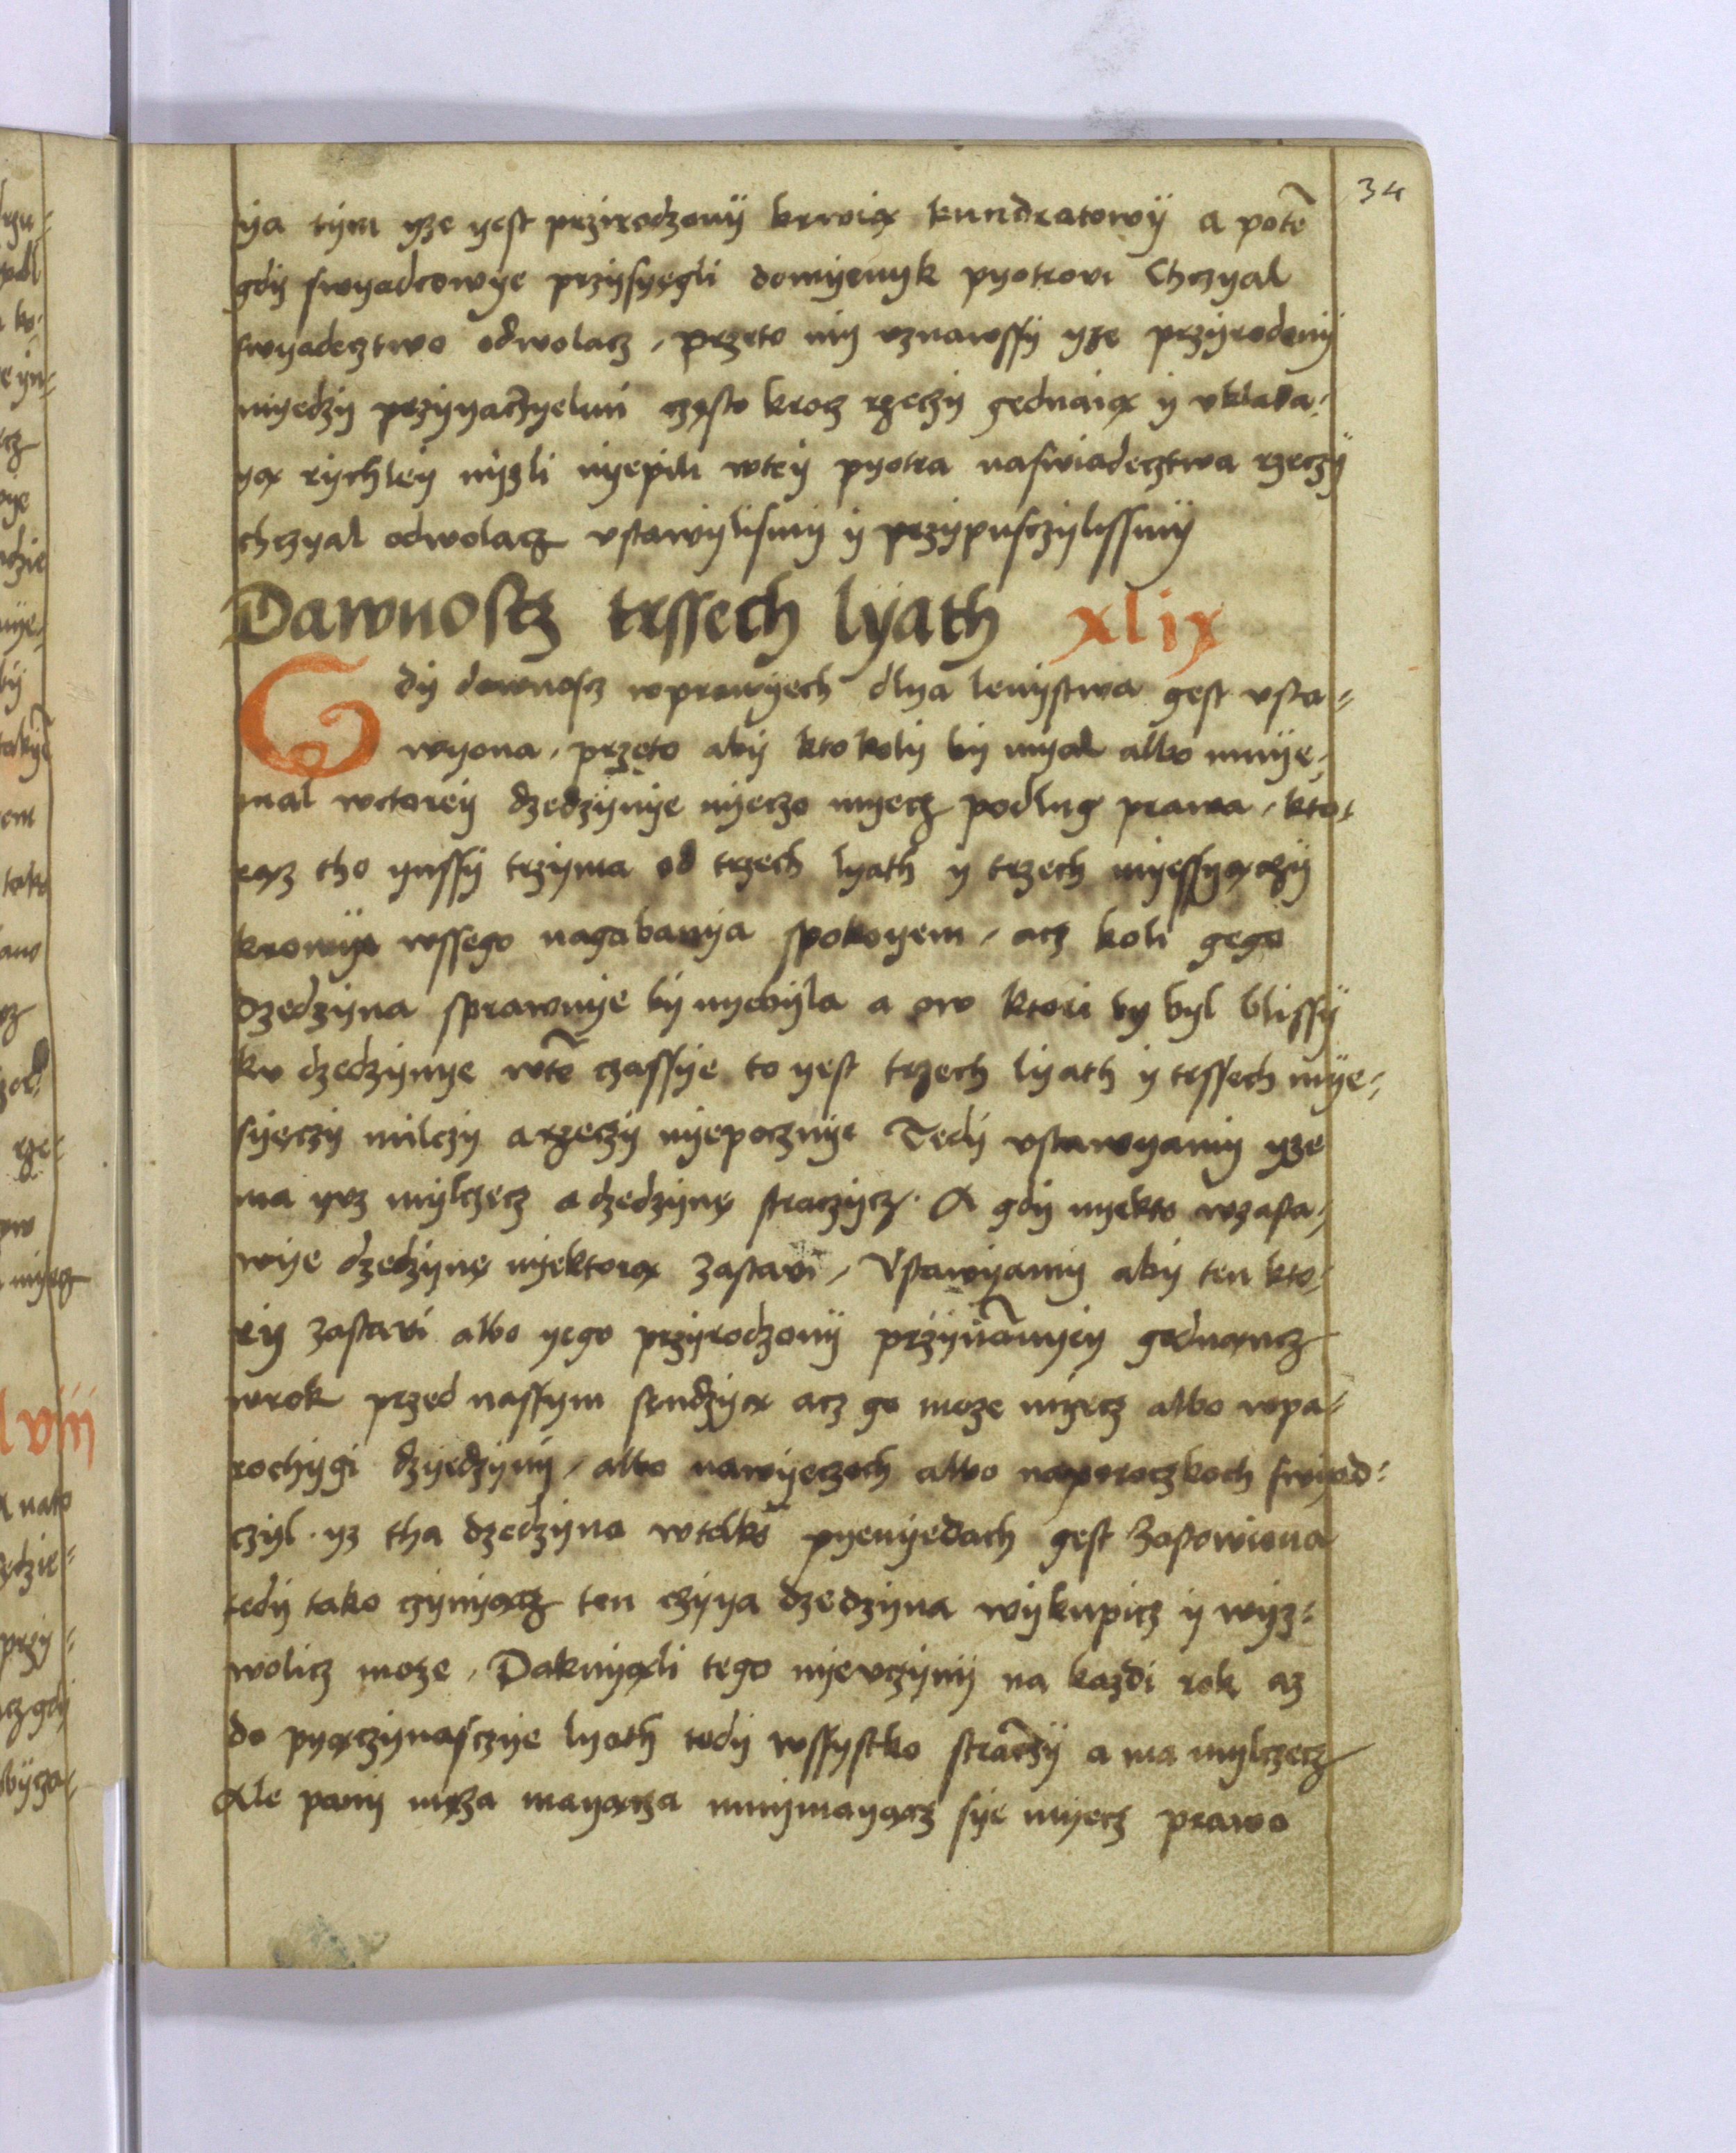 34
ya tym yze yest przirodzony krwią kundratowy a potē
gdy swyadcowye przysyęgli domyenyk pyotrovi Chczyal
swyadecztwo odwolacz, przeto my vznawssy yze przyrodeny
myedzy przyyaczyelmi często krocz rzeczy gednaią y vklada:
yą rychley nyzli nyepili wtey pyotra naswiadecztwa rzeczy
chczyal odwolacz vstawylismy y przypusczylissmy
Dawnoscz trssech lyath xlix
Gdy dawnoscz wprawyech dlya lenystwa gest vsta=
wyona, przeto aby ktokoly by myal albo mnye,
mal wctorey dzedzynye nyeczo myecz podlug prawa, kto:
rąz tho ynssy trzyma od trzech lyath y trzech myessyączy
kromye wssego nagabanya spokoyem, acz koli gego
Dzedzyna sprawnye by nyebyla a ow ktori by byl blissy
ku dzedzynye wtē czassye to yest trzech lyath y trssech mye,
syęczy milczy a rzeczy nyepocznye Tedy vstawyamy yze
ma yvz mylczecz a dzedzynę straczycz. A gdy nyekto wzasta,
wye dzedzynę nyektorą zastavi, Vstawyamy aby ten kto:
ry zastavi albo yego przyrodzony przynāmyey gednącz
wrok przed nassym sendzyą acz go moze myecz albo wpa:
rochygi dzyedzyny, albo nawyeczoch albo naproczkoch swyad:
czyl. yz tha dzedzyna wtelkō pyenyedach gest Zastawiona
tedy tako czynyącz ten czyya dzedzyna wykupicz y wyz:
wolicz moze, Paknyąli tego nyevczyny na kazdi rok az
do pyączynasczye lyath tedy wssystko straczy a ma mylczecz
Ale pany męza mayącza mnymayącz sye myecz prawo